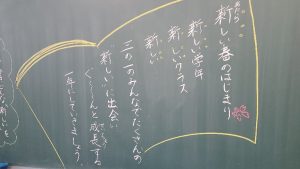 新しい春のはじまり
新しい学年
新しいクラス
新しい
二の一のみんなでたくさんの
新しいに出会い
ぐーんと成長する
一年にしていきましょう。